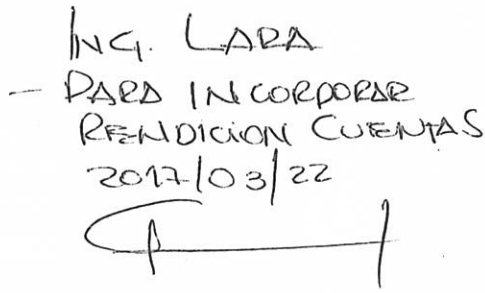 ING. LARA
- PARA INCORPORAR
RENDICION CUENTAS
2017/03/22